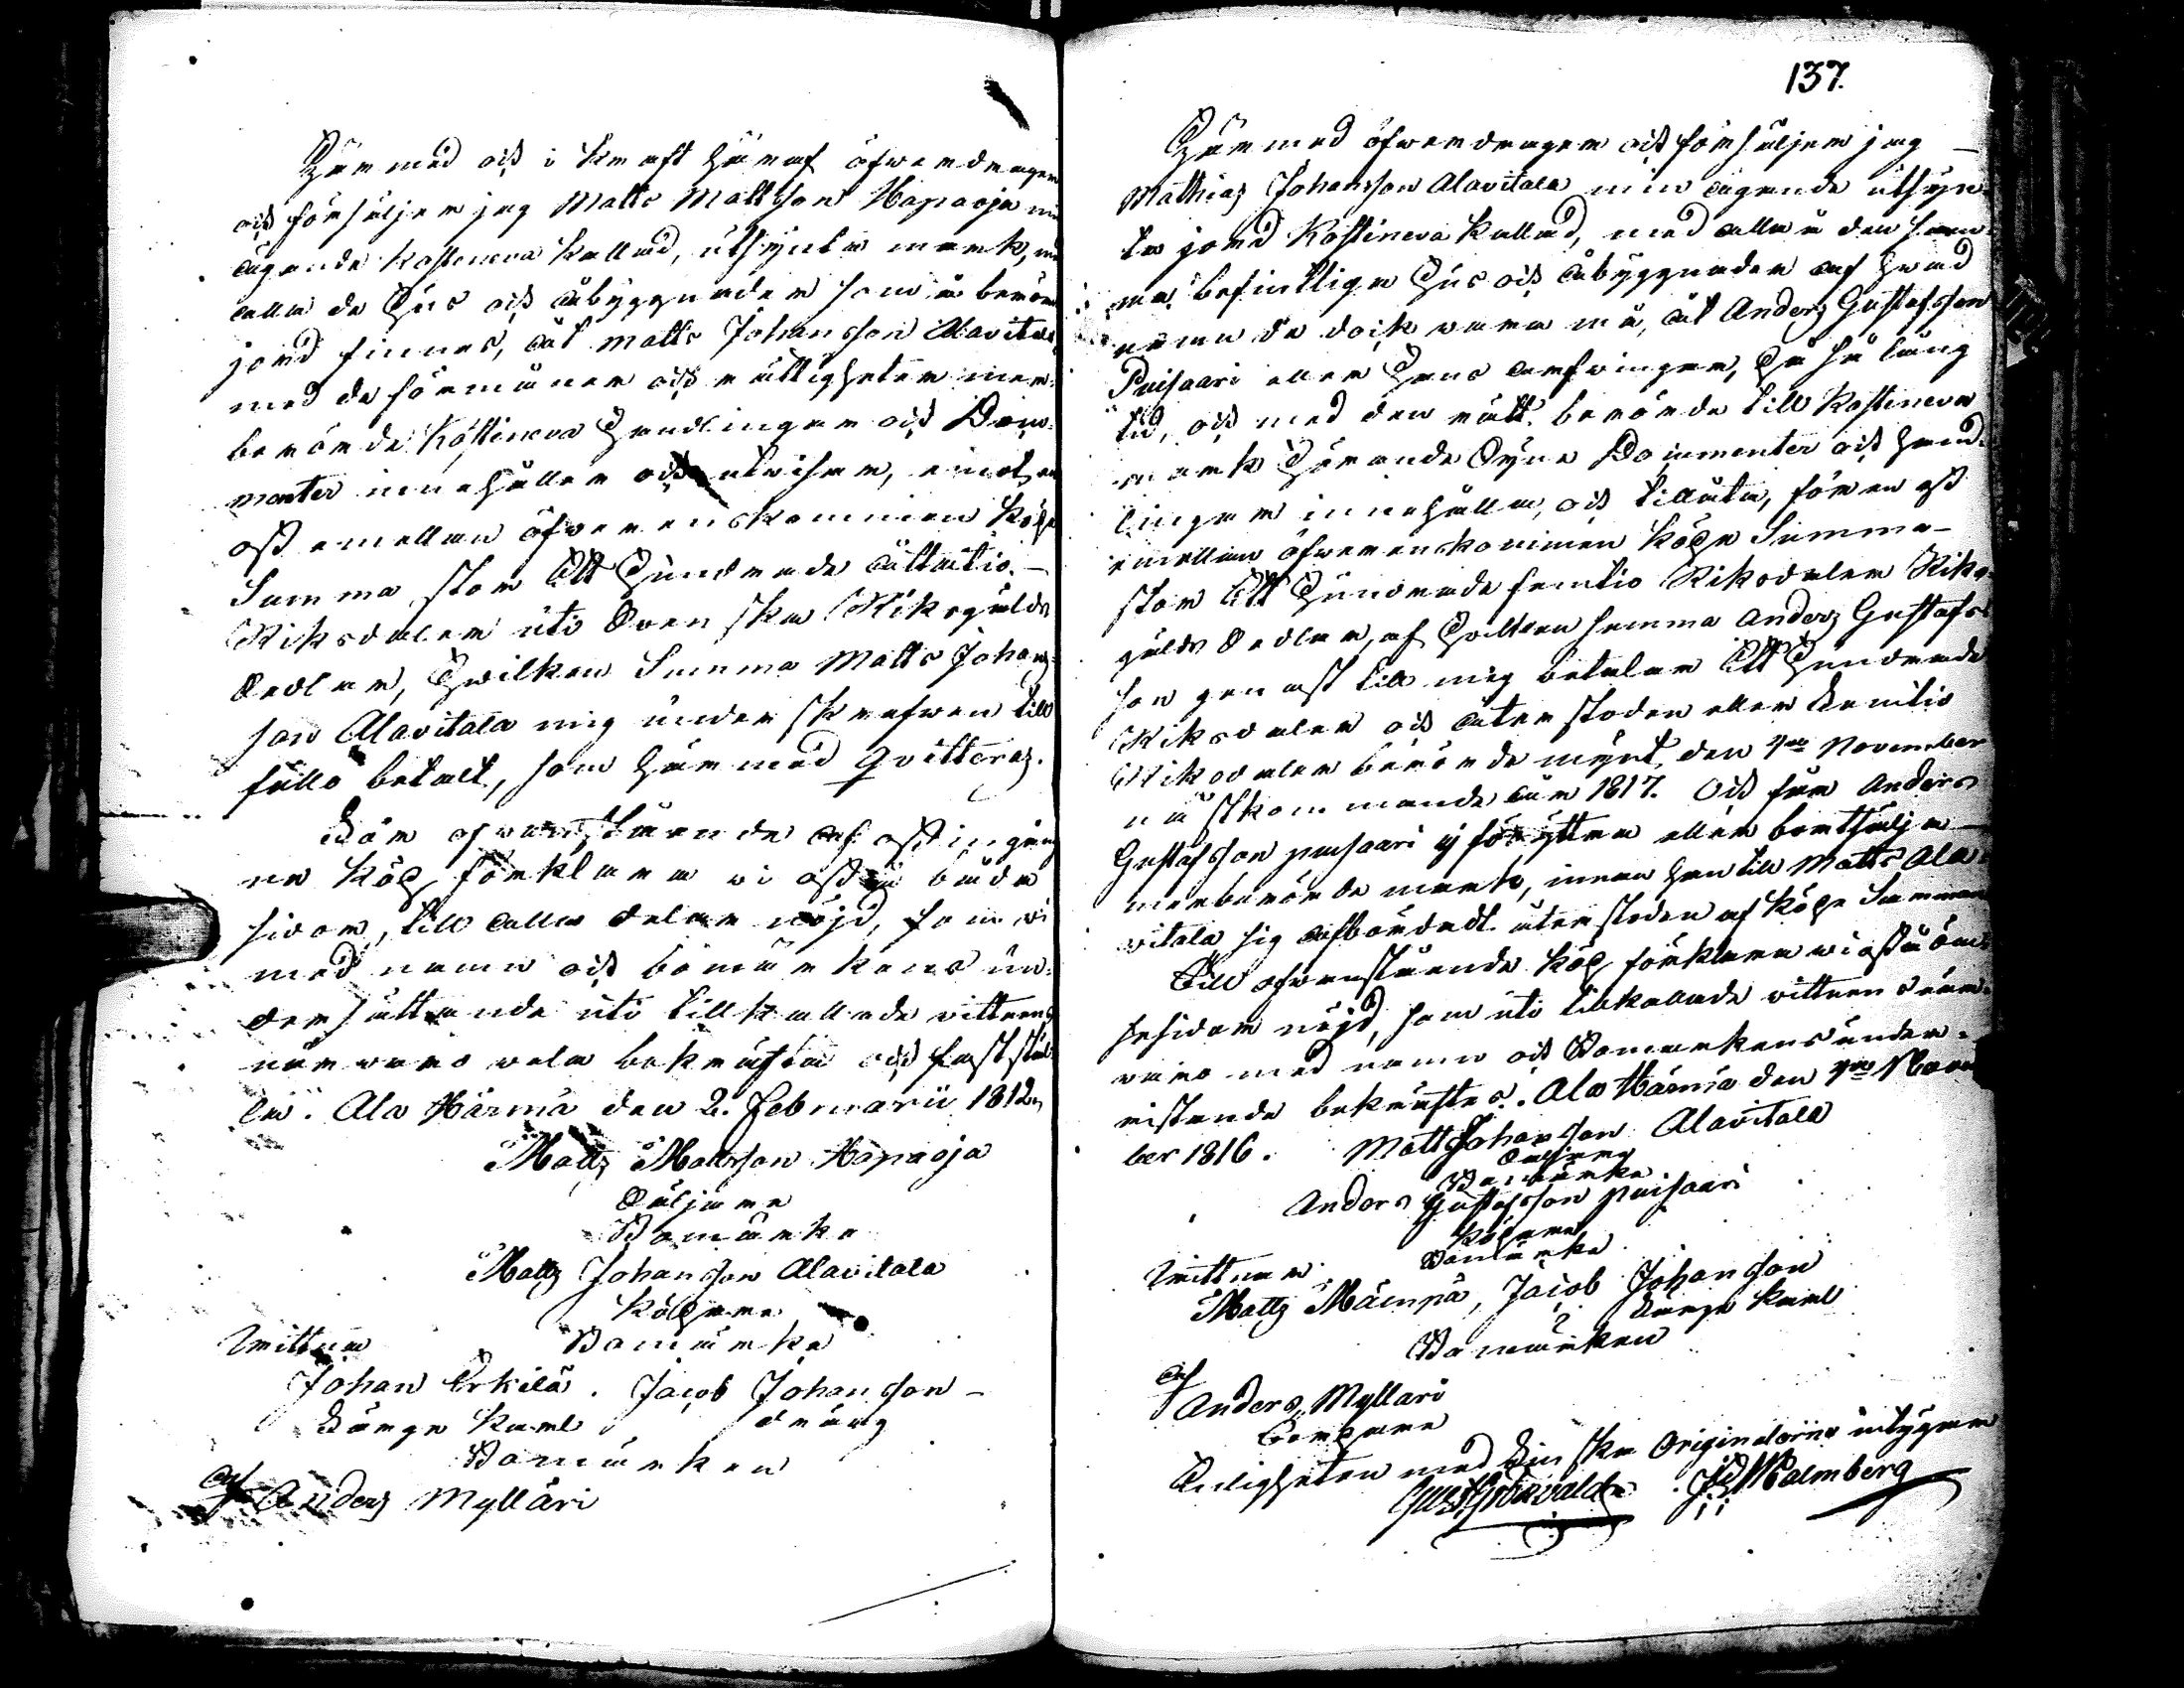 Härmed och i kraft häraf öfwerdrager
och försäljer jag Matts Mattsson Hapaoja min
ägande Kostineva kallad, utsynta mark, med
alla de hus och åbyggnader som å berörde
jord finnes, åt Matts Johansson Alavitala
med de förmåner och rättigheter mer
berörde Kostineva Handlingar och Docu-
menter innehåller och utwisar, emot en
oss emellan öfwerenskommen köpe
Summa, stor Ett Hundrade åttatio
Riksdaler uti Svenska Riksgälds
Sedlar, hwilken Summa Matts Johans-
son Alavitala mig underskrefwen till
fullo betalt, som härmed Qvitteras.
För ofwanstående af oss ingång-
ne köp förklara vi oss å båda
sidor, till alla delar nöjd, som vi
med namn och bomärkens un-
dersättande uti tillkallade vittnens
närvaro vela bekräfta och fastställ-
la. Ala Härmä den 2. Februarii 1812
Matts Mattsson Hapaoja
Säljare
Bomärke
Matts Johansson Alavitala
Köpare
Bomärke
Wittna
Johan Erkilä. Jacob Johansson
Torpe karl dräng
Bomärken
af Anders Mylläri
137.
Härmed öfwerdrager och försäljer jag
Mathias Johansson Alavitala min ägande utsyn-
ta jord Kostineva kallad, med alla å den sam-
ma befintliga hus och åbyggnader af hwad
namn de dock vara må, åt Anders Gustafsson
Puisaari eller Hans arfwingar, på så lång
tid, och med den rätt berörde till Kostineva
mark hörande Syne Documenter och Hand-
lingar innehålla, och tillåta, för en oss
emellan öfwerenskommen köpe Summa
stor Ett Hundrade femtio Riksdaler Riks-
gälds Sedlar, af hvilken summa Anders Gustafs-
son genast till mig betalar Ett Hundrade
Riksdaler och återstoden eller Femtio
Riksdaler berörde mynt, den 1ta November
nästkommande år 1817. Och får Anders
Gustafsson Puisaari ej föryttra eller bortsälja
merberörde mark, innan han till Matts Ala-
vitala sig afbördadt återstoden af köpe Summan
Till ofwanstående köp förklara wi oss å öm-
sesidor nöjd, som uti tilkallade vittnen när-
varo med namn och Bomärkens under-
ristande bekräftes. Ala Härmä den 1ta Novem
ber 1816. Matts Johansson Alavitala
Säljare
Bomärke
Anders Gustafsson Puisaari
Köpare
Bomärke
Wittnar
Matts Mämpä, Jacob Johansson
Torpe karl
Bomärken
af
Anders Myllari
Torpare
Enligheten med Finska Originalerne intygar
Gust Grönvald JH Malmberg